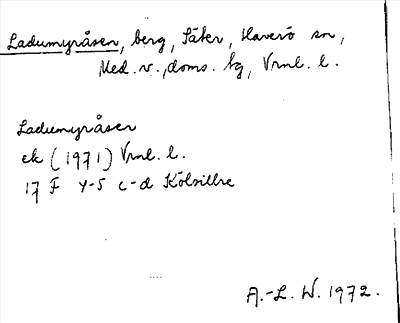 Ladumyråsen, berg, Säter, Haverö sn,
Med. v., doms. hg, Vrnl. l.
Ladumyråsen
ek (1971) Vrnl. l.
17 F Y-5 c-d Kölsillre
A.-L. W. 1972.